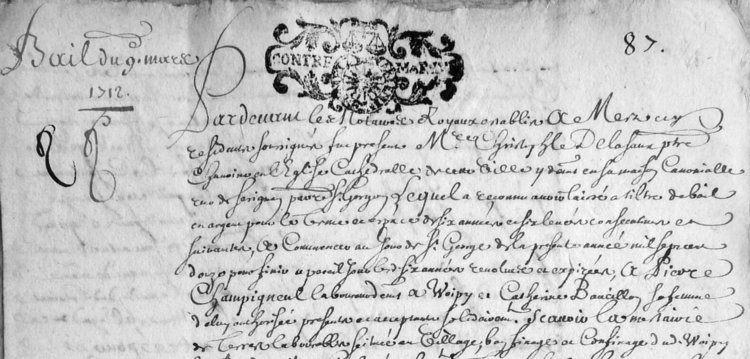 Bail du 9e mars
1712.
CONTRE MARQ
87.
Pardevant les Nottaires Royaux establis A Metz y
residans soussignés fut present Mre Christophle Delasaux ptre
Chanoine en l'Eglise Cathedralle de cette Ville y dmt en sa maison Canonialle
rue de paroisse St Gorgon Lequel a reconnu avoir laissé a tiltre de bail
en argent pour le Terme et espace de six années et six levées consecutives et
suivantes, A Commencer au jour de St George de la presente année mil sept cent
douze pour finir a pareil jour lesd six années revolues et expirées, A Pierre
Champigneul laboureur dmt A Woipy et Catherine Bouzillon sa femme
de luy authorisée presents et acceptans solidairemt. Scavoir La
de Terres labourables scituée au Village, ban finage et Confinage dud. Woipy